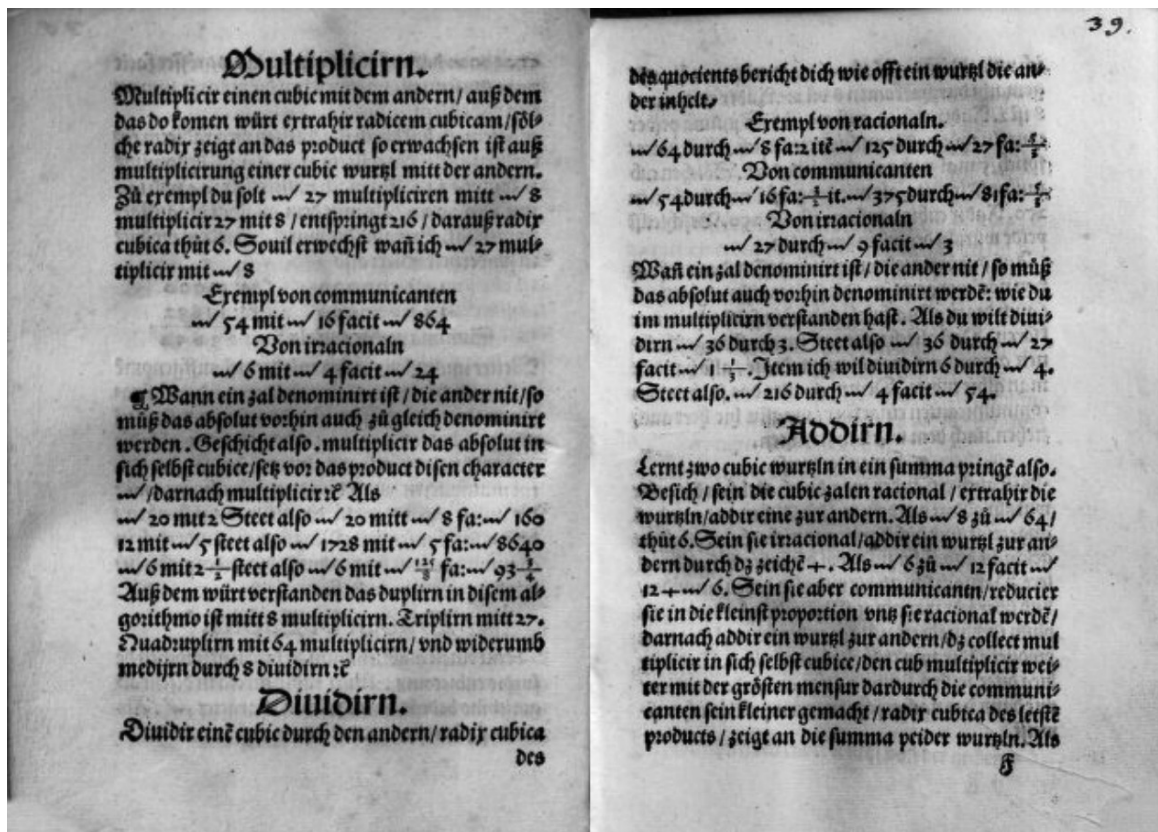 Multiplicirn.
Multiplicir einen cubic mit dem andern/ auß dem
das do komen würt extrahir radicem cubicam/söl⸗
che radix zeigt an das product so erwachsen ist auß
multiplicirung einer cubic wurtzl mitt der andern.
Zů exempl du solt √ 27 multipliciren mitt √ 8
multiplicir 27 mit 8 / entspringt 216 / darauß radix
cubica thůt 6. Souil erwechst wañ ich √ 27 mul⸗
tiplicir mit √ 8
Exempl von communicanten
√ 54 mit √ 16 facit √ 864
Von irracionaln
√ 6 mit √ 4 facit √ 24
¶ Wann ein zal denominirt ist / die ander nit/so
můß das absolut vorhin auch zů gleich denominirt
werden. Geschicht also. multiplicir das absolut in
sich selbst cubice/setz vor das product disen character
√ /darnach multiplicir ꝛc̄ Als
√ 20 mit 2 Steet also √ 20 mitt √ 8 fa: √ 160
12 mit √ 5 steet also √ 1728 mit √ 5 fa: √ 8640
√ 6 mit 2 1/2 steet also √ 6 mit √ 125/8 fa: √ 93 3/4
Auß dem würt verstanden das duplirn in disem al⸗
gorithmo ist mitt 8 multiplicirn. Triplirn mitt 27.
Quadruplirn mit 64 multiplicirn/ vnd widerumb
medijrn durch 8 diuidirn ꝛc̄
Diuidirn.
Diuidir einē cubic durch den andern/ radix cubica
des
39.
des quocients bericht dich wie offt ein wurtzl die an⸗
der inhelt.
Exempl von racionaln.
√ 64 durch √ 8 fa: 2 itē √ 125 durch √ 27 fa: 5/3
Von communicanten
√ 54 durch √ 16 fa: 3/2 it. √ 375 durch √ 81 fa: 5/3
Von irracionaln
√ 27 durch √ 9 facit √ 3
Wañ ein zal denominirt ist / die ander nit / so můß
das absolut auch vorhin denominirt werdē: wie du
im multiplicirn verstanden hast. Als du wilt diui⸗
dirn √ 36 durch 3. Steet also √ 36 durch √ 27
facit √ 1 1/3. Item ich wil diuidirn 6 durch √ 4.
Steet also. √ 216 durch √ 4 facit √ 54.
Addirn.
Lernt zwo cubic wurtzln in ein summa pringē also.
Besich / sein die cubic zalen racional / extrahir die
wurtzln/addir eine zur andern. Als √ 8 zů √ 64/
thůt 6. Sein sie irracional/addir ein wurtzl zur an⸗
dern durch dz zeichē +. Als √ 6 zů √ 12 facit √
12 + √ 6. Sein sie aber communicantn/reducier
sie in die kleinst proportion vntz sie racional werdē/
darnach addir ein wurtzl zur andern/dz collect mul
tiplicir in sich selbst cubice/den cub multiplicir wei⸗
ter mit der grösten mensur dardurch die communi⸗
canten sein kleiner gemacht / radix cubica des letstē
products / zeigt an die summa peider wurtzln. Als
F